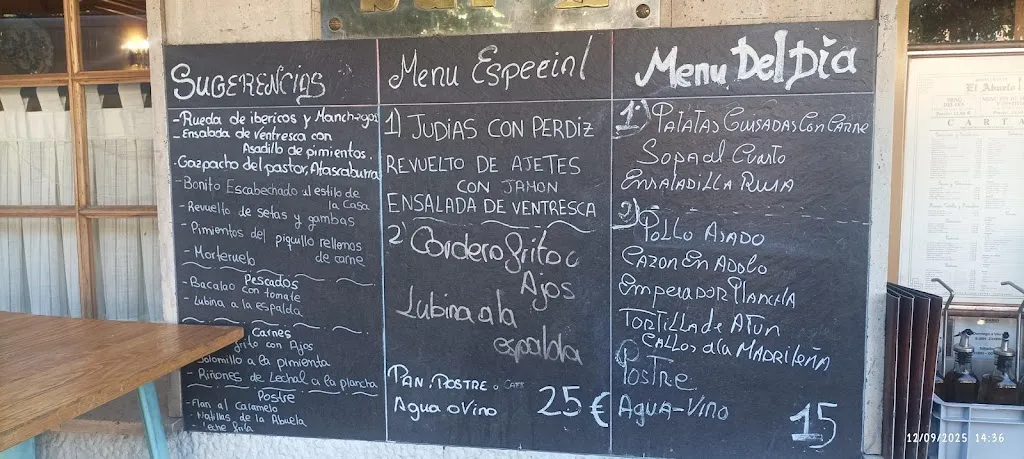 SUGERENCIAS
-Rueda de ibericos y Manchegos
-Ensalada de ventresca con
Asadillo de pimientos.
-Gazpacho del pastor, Atasraburra
-Bonito Escabechado al estilo de
la Casa
-Revuelto de setas y gambas
-Pimientos del piquillo rellenos
de carne
-Morteruelo
Pescados
-Bacalao con tomate
-Lubina a la espalda
Carnes
frito con Ajos
Solomillo a la pimienta
-Riñones de Lechal a la plancha
Postre
-Flan al Caramelo
-Natillas de la Abuela
Leche frita
Menu Especial
1) JUDIAS CON PERDIZ
REVUELTO DE AJETES
CON JAMON
ENSALADA DE VENTRESCA
2 Cordero frito c
Ajos
Lubina a la
espalda
PAN, POSTRE o CAFE
Agua o Vino 25 €
Menu Del Dia
1º) PATATAS GUISADAS CON CARNE
Sopa al Cuarto
ENSALADILLA RUSA
2) POLLO ASADO
CAZON EN ADOBO
EMPERADOR PLANCHA
TORTILLA DE ATUN
CALLOS a la MADRILEÑA
POSTRE
AGUA-VINO 15
El Abuelo
CARTA
12/09/2025 14:36